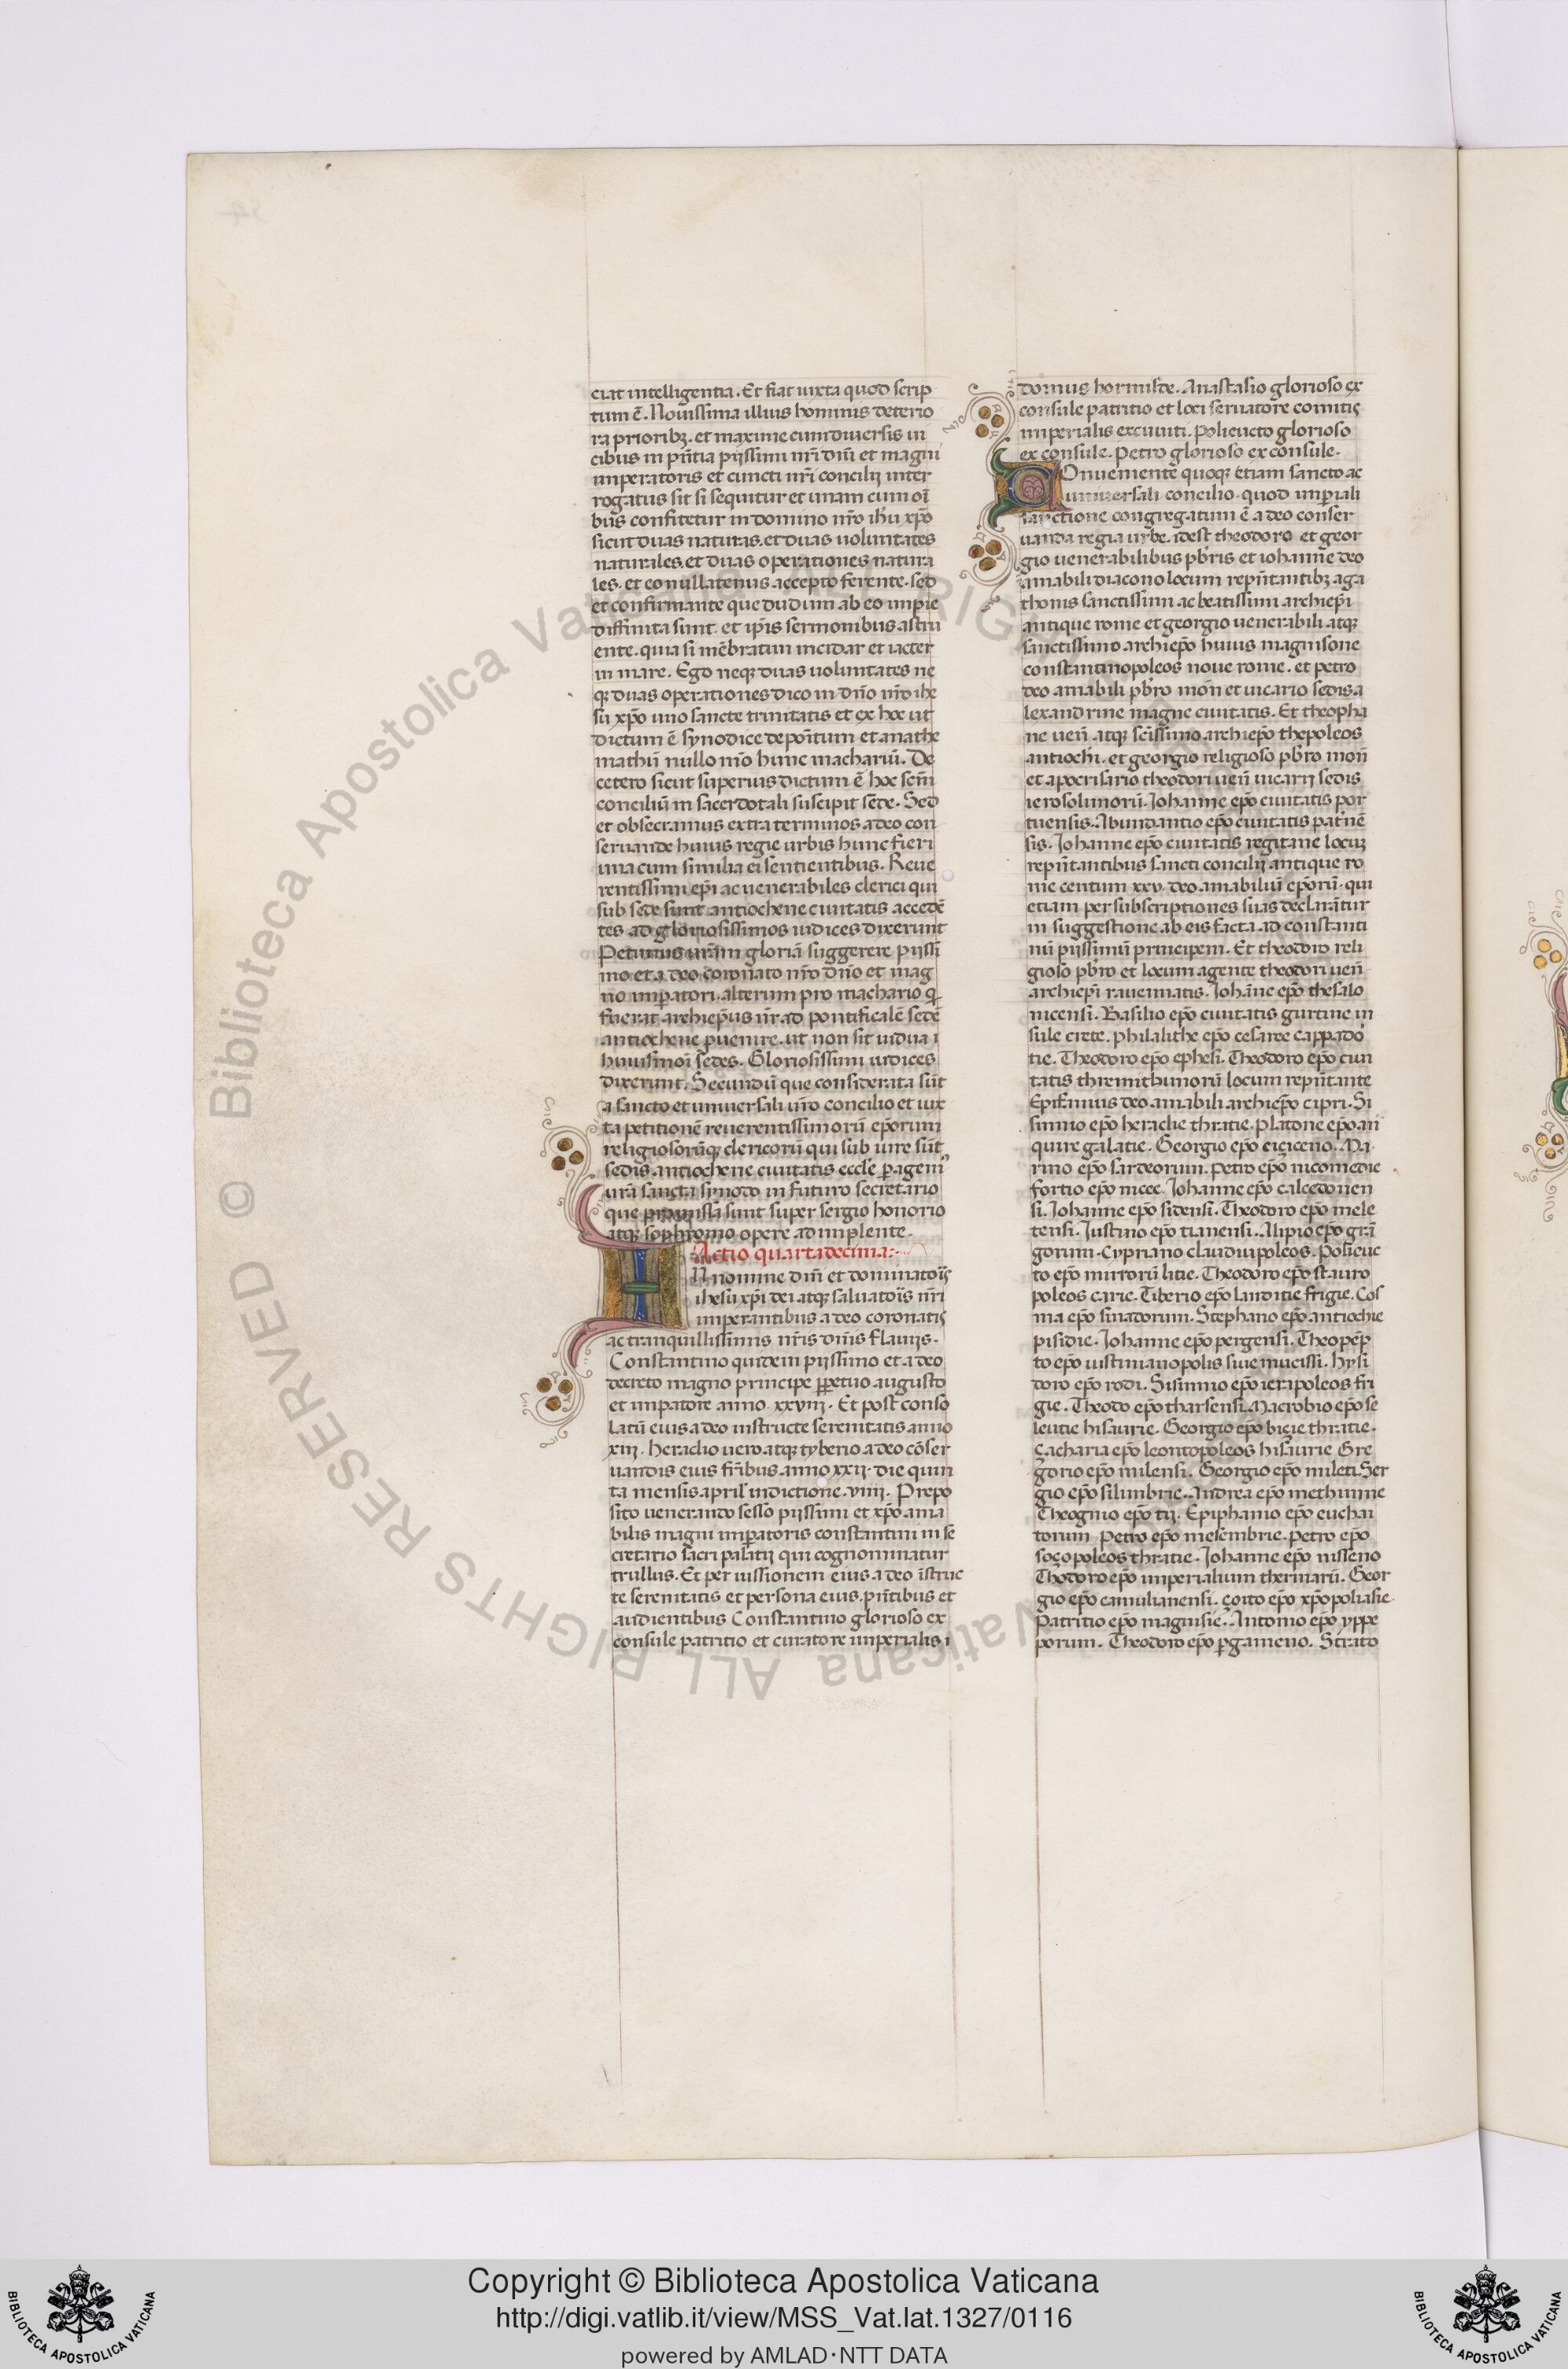 ciat intelligentia. Et fiat iuxta quod scrip
tum ē. Nouissima illius hominis deterio
ra prioribꝫ. et maxime cum diuersis ui
cibus in pn̄tia piissimi nr̄i dn̄i et magni
imperatoris et cuncti nr̄i concilii inter
rogatus sit si sequitur et unam cum oī
bus confitetur in domino nr̄o ih̄u xp̄o
sicut duas naturas. et duas uoluntates
naturales. et duas operationes natura
les. et eo nullatenus accepto ferente. sed
et confirmante que dudum ab eo impie
diffinita sunt. et ip̄is sermonibus astru
ente. quia si mēbratim incidar et iacter
in mare. Ego neqꝫ duas uoluntates ne
qꝫ duas operationes dico in dn̄o nr̄o ihe
su xp̄o uno sancte trinitatis et ex hoc ut
dictum ē synodice depoītum et anathe
mathū nullo mō hunc machariū. De
cetero sicut superius dictum ē hoc scm̄
conciliū in sacerdotali suscipit sede. Sed
et obsecramus extra terminos a deo con
seruande huius regie urbis hunc fieri
una cum similia ei sentientibus. Reue
rentissimi ep̄i ac uenerabiles clerici qui
sub sede sunt antiochene ciuitatis accedē
tes ad gloriosissimos iudices dixerunt
Petimus ur̄am gloriā suggerere piissi
mo et a deo coronato nr̄o dn̄o et mag
no imp̄atori. alterum pro machario q̄
fuerat archiep̄us nr̄ ad pontificalē sedē
antiochene ꝓuenire. ut non sit uidua i
huiusmōi sedes. Gloriosissimi iudices
dixerunt. Secundū que considerata sūt
a sancto et uniuersali ur̄o concilio et iux
ta petitionē reuerentissimorū ep̄orum
religiosorūqꝫ clericorū qui sub iure sūt
sedis antiochene ciuitatis eccl̄e ꝑagent̄
ura sancta synodo in futuro secretario
que promissa sunt super sergio honorio
atqꝫ sophronio opere adimplente.
Actio quartadecima:
IN nomine dn̄i et dominatoīs
ihesu xp̄i dei atqꝫ saluatoīs nr̄i
imperantibus a deo coronatis
ac tranquillissimis nr̄is dn̄is flauiis.
Constantino quidem piissimo et a deo
decreto magno principe ꝑpetuo augusto
et imꝑatore anno xxviii. Et post conso
latū eius a deo instructe serenitatis anno
xiii. heraclio uero atqꝫ tyberio a deo cōser
uandis eius fr̄ibus anno xxii. die quin
ta mensis april̄ indictione. viiii. Prepo
sito uenerando sesso piissimi et xp̄o ama
bilis magni imꝑatoris constantini in se
cretario sacri palatii qui cognominatur
trullus. Et per iussionem eius a deo īstruc
te serenitatis et persona eius. pn̄tibus et
audientibus Constantino glorioso ex
consule patritio et curatore imperialis i
domus hormisde. Anastasio glorioso ex
consule patritio et loci seruatore comitis
imperialis excuuiti. Polieucto glorioso
ex consule. Petro glorioso ex consule.
Conueniente quoqꝫ etiam sancto ac
uniuersali concilio. quod imꝑiali
sanctione congregatum ē a deo conser
uanda regia urbe. idest theodoro et geor
gio uenerabilibus pb̄ris et iohanne deo
amabili diacono locum repn̄tantibꝫ aga
thonis sanctissimi ac beatissimi archiep̄i
antique rome et georgio uenerabili atqꝫ
sanctissimo archiep̄o huius magnisone
constantinopoleos noue rome. et petro
deo amabili pb̄ro mon̄ et uicario sedis a
lexandrine magne ciuitatis. Et theopha
ne uen̄ atqꝫ scīssimo archiep̄o thepoleos
antiochi. et georgio religioso pb̄ro mon̄
et apocrisario theodori uen̄ uicarii sedis
ierosolimorū. Iohanne ep̄o ciuitatis por
tuensis. Abundantio ep̄o ciuitatis patnē
sis. Iohanne ep̄o ciuitatis regitane locuꝫ
repn̄tantibus sancti concilii antique ro
me centum xxv. deo amabiliū ep̄orū. qui
etiam per subscriptiones suas declarātur
in suggestione ab eis facta ad constanti
nū piissimū principem. Et theodoro reli
gioso pb̄ro et locum agente theodori uen̄
archiep̄i rauennatis. Iohāne ep̄o thesalo
nicensi. Basilio ep̄o ciuitatis gurtine in
sule crete. Philalithe ep̄o cesaree cappado
tie. Theodoro ep̄o ephesi. Theodoro ep̄o ciui
tatis thremithunorū locum repn̄tante
Epifannius deo amabili archiep̄o cipri. Si
sinnio ep̄o heraclie thratie. Platone ep̄o an
quire galatie. Georgio ep̄o ciçiceno. Ma
rino ep̄o sardeorum. Petro ep̄o nicomedie
fortio ep̄o nicee. Iohanne ep̄o calcedonen
si. Iohanne ep̄o sidensi. Theodoro ep̄o mele
tensi. Iustino ep̄o tianensi. Alipio ep̄o gra
gorum. Cypriano claudiupoleos. Polieuc
to ep̄o mirrorū litie. Theodoro ep̄o stauro
poleos carie. Tiberio ep̄o landitie frigie. Cos
ma ep̄o sinadorum. Stephano ep̄o antiochie
pisidie. Iohanne ep̄o pergensi. Theopēp
to ep̄o iustinianopolis siue mucissi. hysi
doro ep̄o rodi. Sisinnio ep̄o ierapoleos fri
gie. Theodo ep̄o tharsensi. Macrobio ep̄o se
leutie hisaurie. Georgio ep̄o biçie thratie.
Çacharia ep̄o leontopoleos hisaurie Gre
gorio ep̄o milensi. Georgio ep̄o mileti. Ser
gio ep̄o silimbrie. Andrea ep̄o methimne
Theognio ep̄o tii. Epiphanio ep̄o euchai
torum Petro ep̄o mesembrie. petro ep̄o
soçopoleos thratie. Iohanne ep̄o nisseno
Thodoro ep̄o imperialium thermarū. Geor
gio ep̄o camulianensi. çoito ep̄o xp̄opoli asie.
Patritio ep̄o magnisie. Antonio ep̄o yppe
porum. Theodoro ep̄o ꝑgameno. Strato
Copyright © Biblioteca Apostolica Vaticana
http://digi.vatlib.it/view/MSS_Vat.lat.1327/0116
powered by AMLAD·NTT DATA